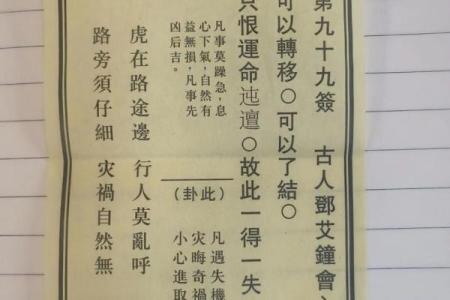 第九十九簽 古人鄧艾鐘會
可以轉移○可以了結○
只恨運命迍邅○故此一得一失
凡事莫躁急，息
心下氣，自然有
益無損，凡事先
凶后吉。
（卦此）
凡遇失機
灾晦奇禍
小心進取
虎在路途邊 行人莫亂呼
路旁須仔細 灾禍自然無